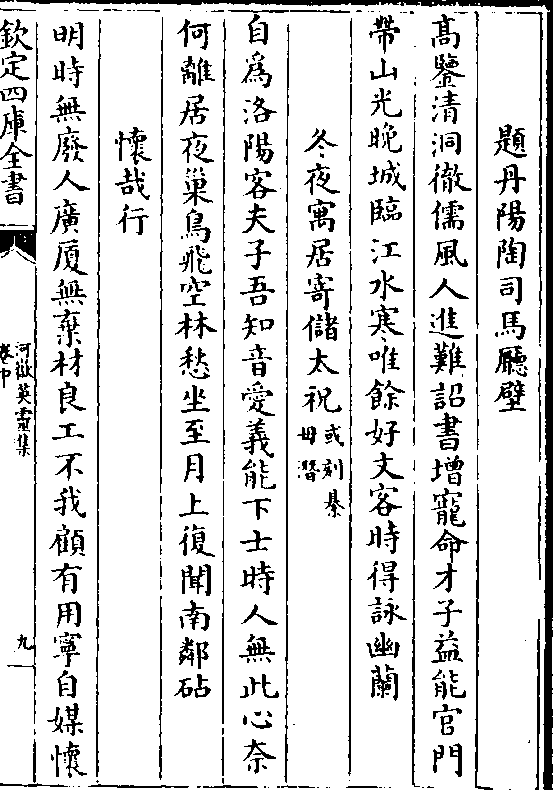 題丹陽陶司馬廳壁
髙鑒清洞徹儒風人進難詔書增寵命才子益能官門
帶山光晚城臨江水寒唯餘好文客時得詠幽蘭
冬夜寓居寄儲太祝或刻綦毋潛
自爲洛陽客夫子吾知音愛義能下士時人無此心奈
何離居夜巢鳥飛空林愁坐至月上復聞南鄰砧
懷哉行
明時無廢人廣厦無棄材良工不我顧有用寧自媒懷
欽定四庫全書
河嶽英靈集
卷中
九